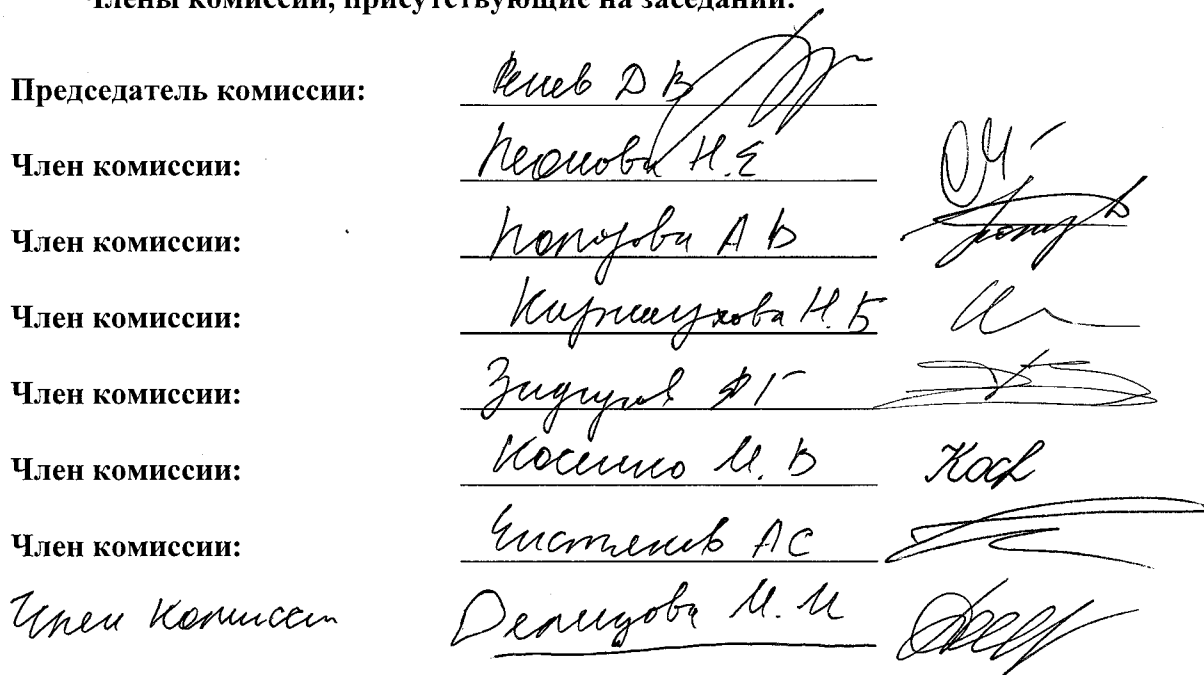 Члены комиссии, присутствующие на заседании:
Председатель комиссии: Ренев Д В
Член комиссии: Леонова Н.Е
Член комиссии: А В
Член комиссии: Н.Б
Член комиссии:
Член комиссии: Косенко М. В
Член комиссии: Чистяков А С
Член комиссии Демидова М. М